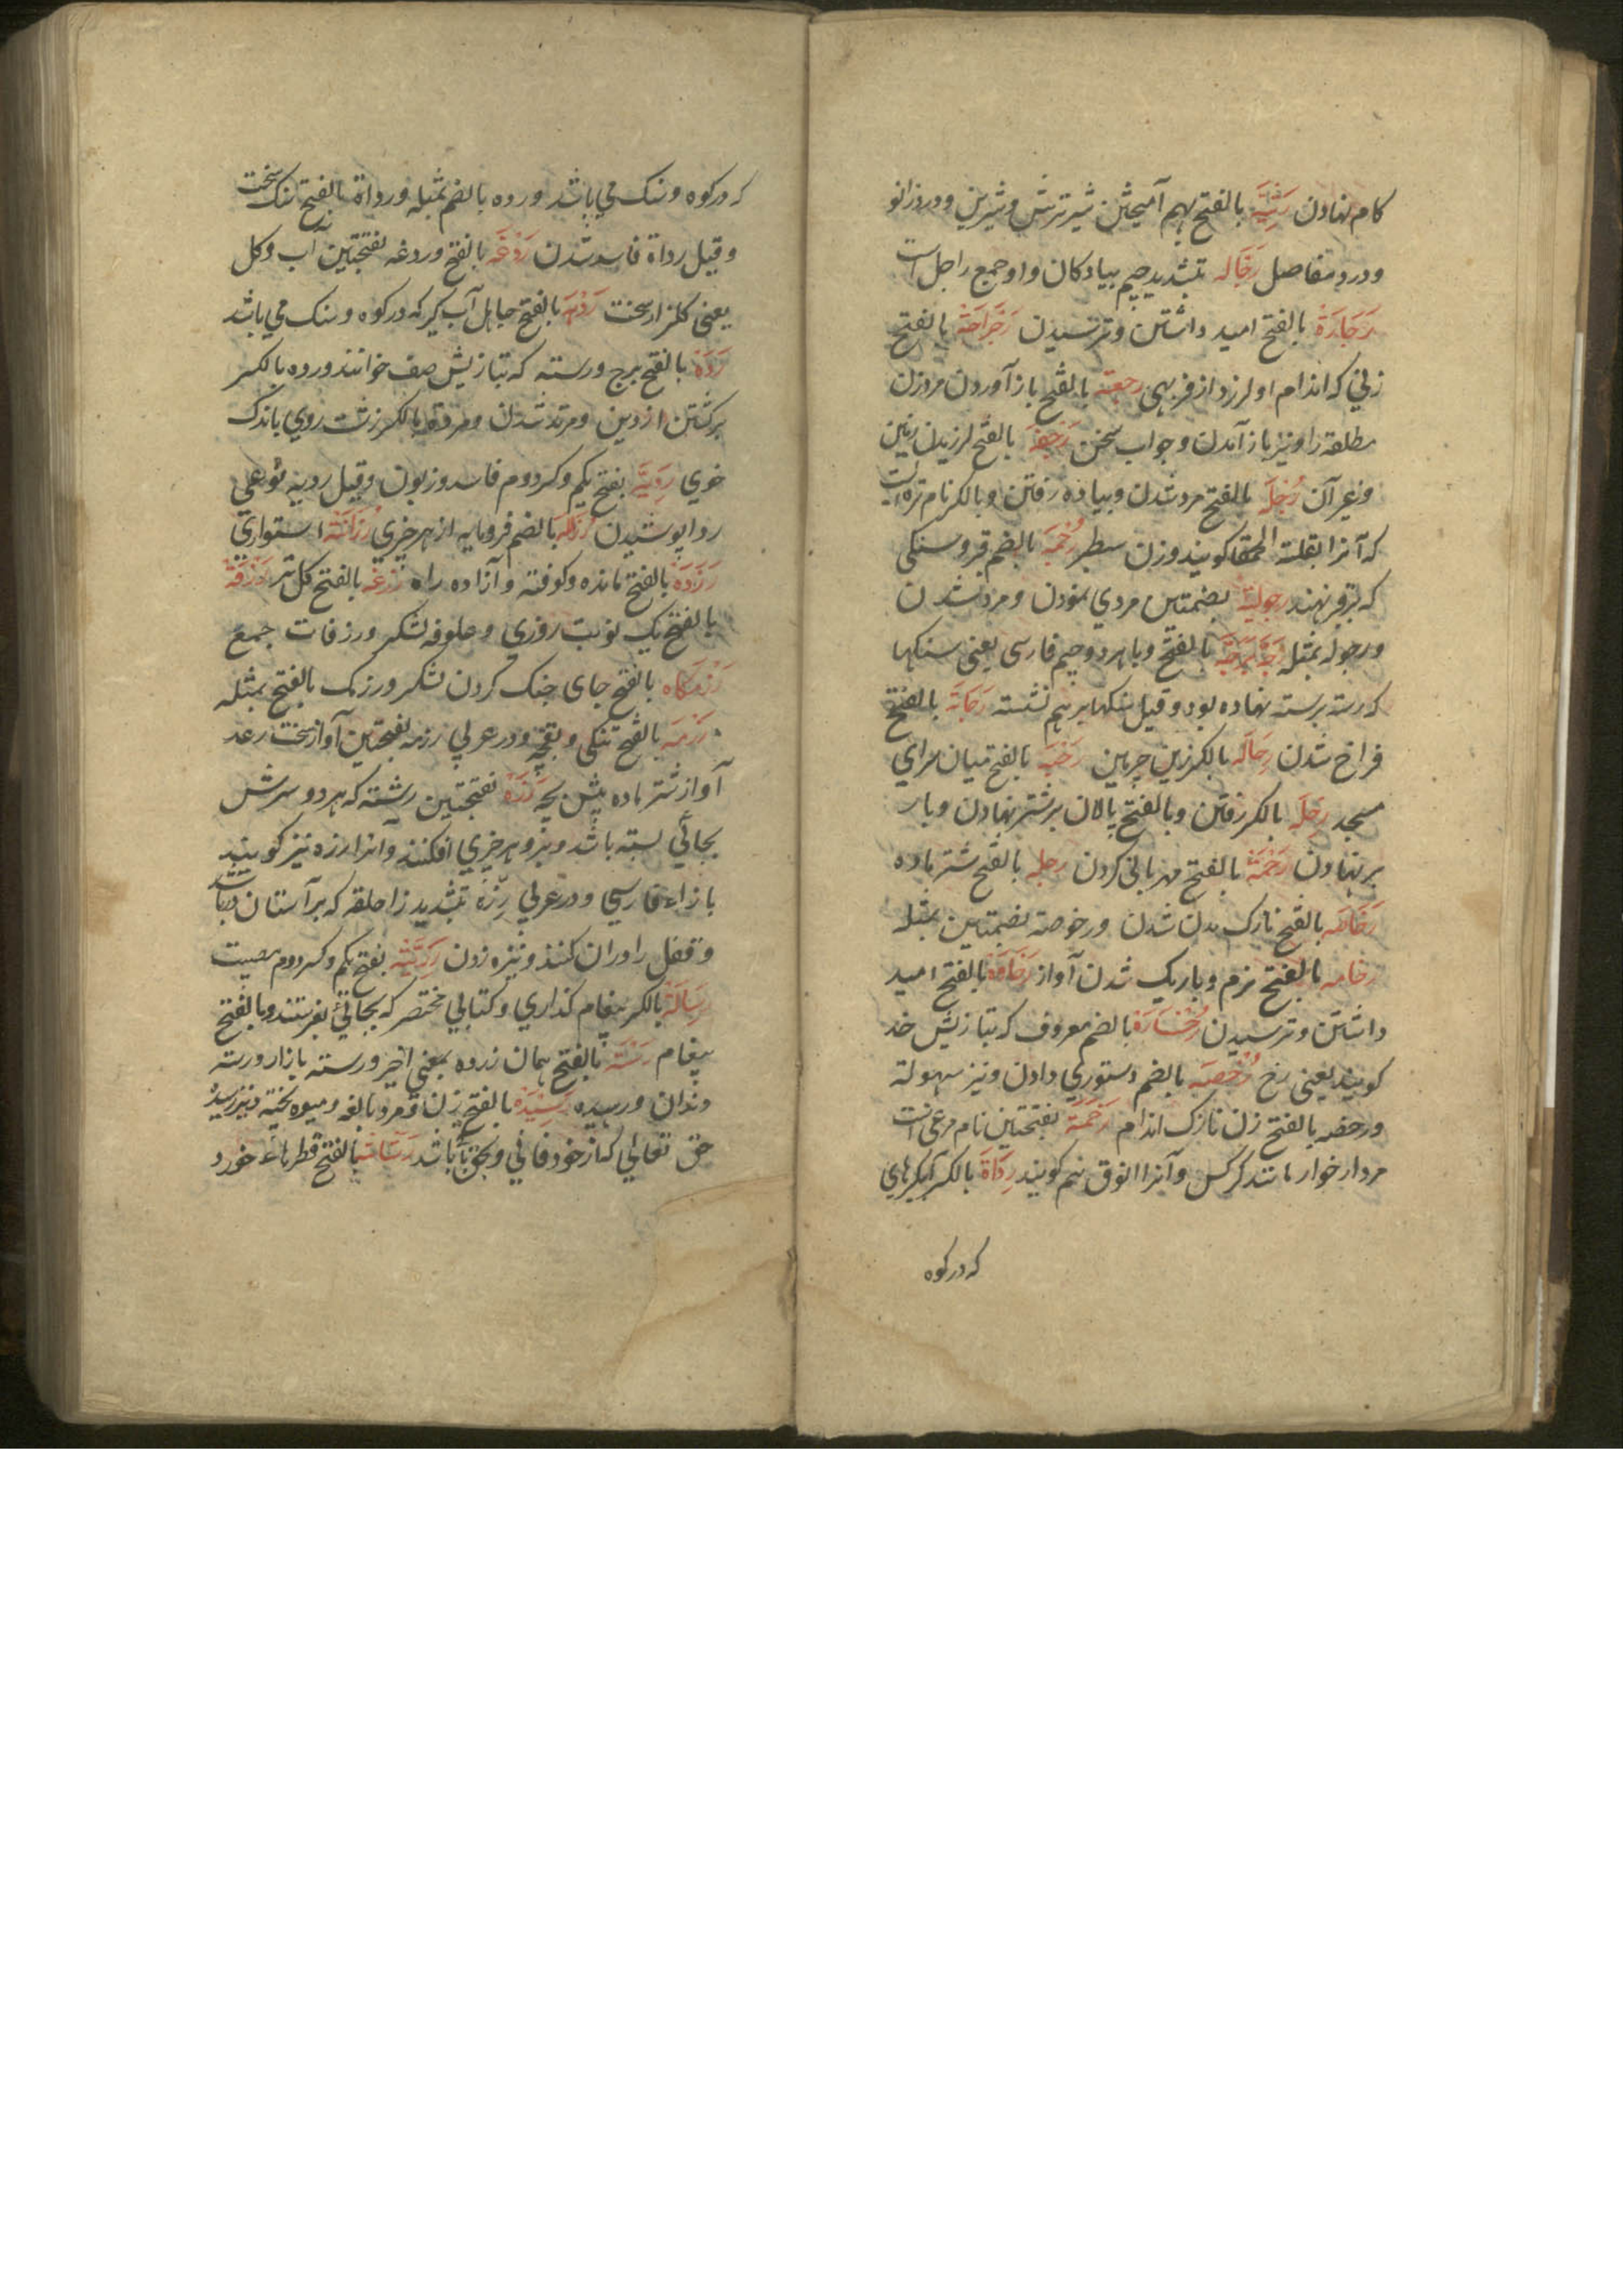 کام نهادن رَثِیَّه بالفتح بهم آمیختن شیر ترش و شیرین و درد زانو
و درد مفاصل رَجّاله بتشدید جیم پیادکان و او جمع راجل است
رَجَارَة بالفتح امید داشتن و ترسیدن رَجْرَاجَة بالفتح
زنی که اندام او لرزد از فربهی رجعة بالفتح باز آوردن مرد زن
مطلقه را و نیز باز آمدن و جواب سخن رَجفَه بالفتح لرزیدن زمین
و غیر آن رُجلَه بالفتح مرد شدن و پیاده رفتن و بالکسر نام تره است
که آنرا بقلة الحمقا کویند و زن سطبر رُجْمَه بالضم قبر و سنکی
که بر قبر نهند رجولیة بضمتین مردی نمودن و مرد شدن
و رجوله بمثله رَجَّه بَرجَّه بالفتح و با هر دو جیم فارسی یعنی سنکها
که رسته برسته نهاده بود و قیل سنکها بر هم نشسته رَحَابَة بالفتح
فراخ شدن رِحَالَه بالکسر زین چرمین رَحْبَه بالفتح میان سرای
مسجد رِحلَه بالکسر رفتن و بالفتح پالان بر شتر نهادن و بار
بر نهادن رَحْمَة بالفتح مهربانی کردن رحله بالفتح شتر ماده
رَخَاصَه بالفتح نازک بدن شدن و رخوصة بضمتین بمثله
رخامه بالفتح نرم و باریک شدن آواز رَخَاوَة بالفتح امید
داشتن و ترسیدن رُخْسَارَة بالضم معروف که بتازیش خد
کویند یعنی رخ رُخْصَه بالضم دستوری دادن و نیز سهولة
و رخصه بالفتح زن نازک اندام رَخَمَة بفتحتین نام مرغی است
مردار خوار مانند کرکس و آنرا انوق هم کویند رِدَاة بالکسر آبکیرهای
که در کوه
که در کوه و سنک می باشد و رده بالضم بمثله و رداة بالفتح سنک سخت
و قیل رداة فاسد شدن رَدْغَه بالفتح و ردغه بفتحتین آب و کل
یعنی کلزار سخت رَدْهَه بالفتح جایل آب کیر که در کوه و سنک می باشد
رَدَه بالفتح برج و رسته که بتازیش صف خوانند و رده بالکسر
برکشتن از دین و مرتد شدن و مردة بالکسر زشت روی باندک
خوی رَدِیَّه بفتح یکم و کسر دوم فاسد و زبون و قیل ردیه نوعی
ردا پوشیدن رُزَاله بالضم فرومایه از هر چیزی رَزَانَة استواری
رَزَدَه بالفتح مانده و کوفته و آزاده راه رَزغَه بالفتح کل تر رَزْقَة
بالفتح یک نوبت روزی و علوفه لشکر و رزقات جمع
رَزْمکَاه بالفتح جای جنک کردن لشکر و رزمک بالفتح بمثله
رَزمَه بالفتح تنکی و بقچه و در عربی رزمه بفتحتین آواز سخت رعد
آواز شتر ماده پیش بچه رَزَه بفتحتین رشته که هر دو سرش
بجائی بسته باشد و برو هر چیزی افکنند و آنرا رزه نیز کویند
با زاء فارسی و در عربی رزّه بتشدید زا حلقه که بر آستان
و قفل را دران کنند و نیزه زدن رَزِیَّه بفتح یکم و کسر دوم مصیبت
رِسَالَة بالکسر پیغام کذاری و کتابی مختصر که بجائی بفرستند و بالفتح
پیغام رَسْتَه بالفتح همان زرده بمعنی اخیر و رسته بازار و رسته
دندان و رسیده رَسِیْدَه بالفتح زن و مرد بالغه و میوه پخته و نیز رسیده
حق تعالی کناز خود فانی و بحق باقی باشد رَشَاشَه بالفتح قطرهاء خورد